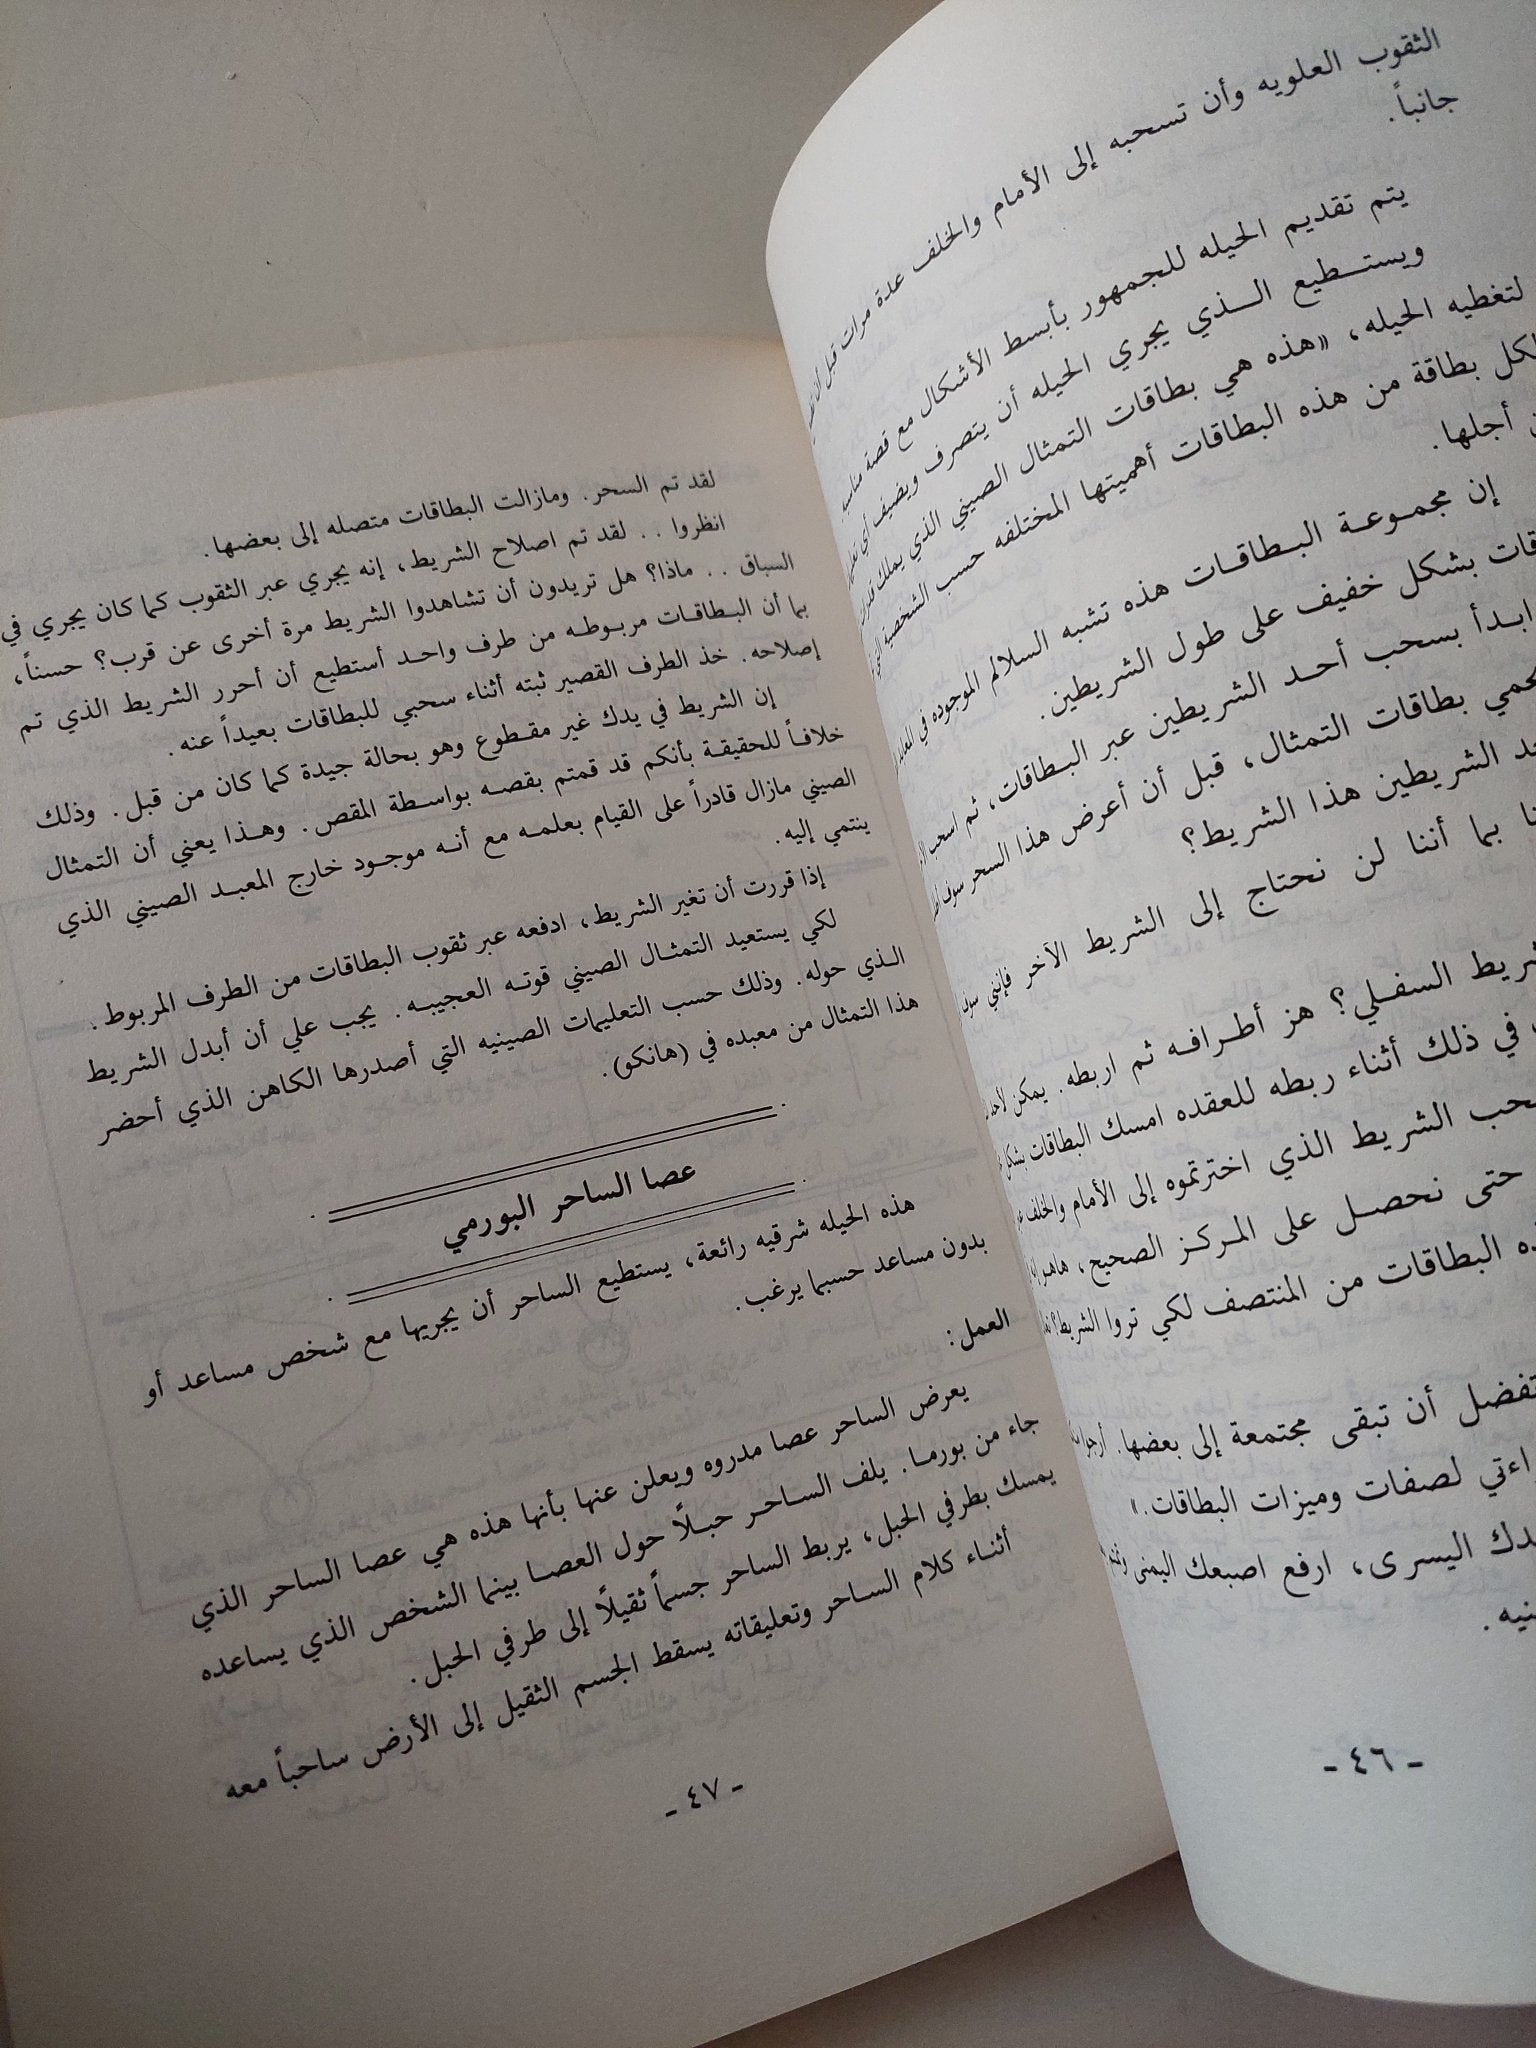 الثقوب العلويه وأن تسحبه إلى الأمام والخلف عدة مرات قبل أن
جانباً.
يتم تقديم الحيله للجمهور بأبسط الأشكال مع قصة مناسبه.
ويستطيع الذي يجري الحيله أن يتصرف ويضيف أي
لتغطيه الحيله، «هذه هي بطاقات التمثال الصيني الذي يملك
لكل بطاقة من هذه البطاقات أهميتها المختلفه حسب الشخصية التي
أجلها.
إن مجموعة البطاقات هذه تشبه السلالم الموجوده في
بشكل خفيف على طول الشريطين.
ابدأ بسحب أحد الشريطين عبر البطاقات، ثم اسحب
بطاقات التمثال، قبل أن أعرض هذا السحر سوف
الشريطين هذا الشريط؟
بما أننا لن نحتاج إلى الشريط الآخر فإنني سوف
السفلي؟ هز أطرافه ثم اربطه. يمكن لأحد
في ذلك أثناء ربطه للعقده امسك البطاقات بشكل
الشريط الذي اخترتموه إلى الأمام والخلف
حتى نحصل على المركز الصحيح،
البطاقات من المنتصف لكي تروا الشريط؟
تفضل أن تبقى مجتمعة إلى بعضها. أرجوا
لصفات وميزات البطاقات.»
اليسرى، ارفع اصبعك اليمنى
- ٤٦ -
لقد تم السحر. ومازالت البطاقات متصله إلى بعضها.
انظروا .. لقد تم اصلاح الشريط، إنه يجري عبر الثقوب كما كان يجري في
السباق .. ماذا؟ هل تريدون أن تشاهدوا الشريط مرة أخرى عن قرب؟ حسناً،
بما أن البطاقات مربوطه من طرف واحد أستطيع أن أحرر الشريط الذي تم
إصلاحه. خذ الطرف القصير ثبته أثناء سحبي للبطاقات بعيداً عنه.
إن الشريط في يدك غير مقطوع وهو بحالة جيدة كما كان من قبل. وذلك
خلافاً للحقيقة بأنكم قد قمتم بقصه بواسطة المقص. وهذا يعني أن التمثال
الصيني مازال قادراً على القيام بعلمه مع أنه موجود خارج المعبد الصيني الذي
ينتمي إليه.
إذا قررت أن تغير الشريط، ادفعه عبر ثقوب البطاقات من الطرف المربوط.
لكي يستعيد التمثال الصيني قوته العجيبه. يجب علي أن أبدل الشريط
الذي حوله. وذلك حسب التعليمات الصينيه التي أصدرها الكاهن الذي أحضر
هذا التمثال من معبده في (هانكو).
عصا الساحر البورمي
هذه الحيله شرقيه رائعة، يستطيع الساحر أن يجريها مع شخص مساعد أو
بدون مساعد حسبما يرغب.
العمل:
يعرض الساحر عصا مدروه ويعلن عنها بأنها هذه هي عصا الساحر الذي
جاء من بورما. يلف الساحر حبلاً حول العصا بينما الشخص الذي يساعده
يمسك بطرفي الحبل، يربط الساحر جسماً ثقيلاً إلى طرفي الحبل.
أثناء كلام الساحر وتعليقاته يسقط الجسم الثقيل إلى الأرض ساحباً معه
- ٤٧ -